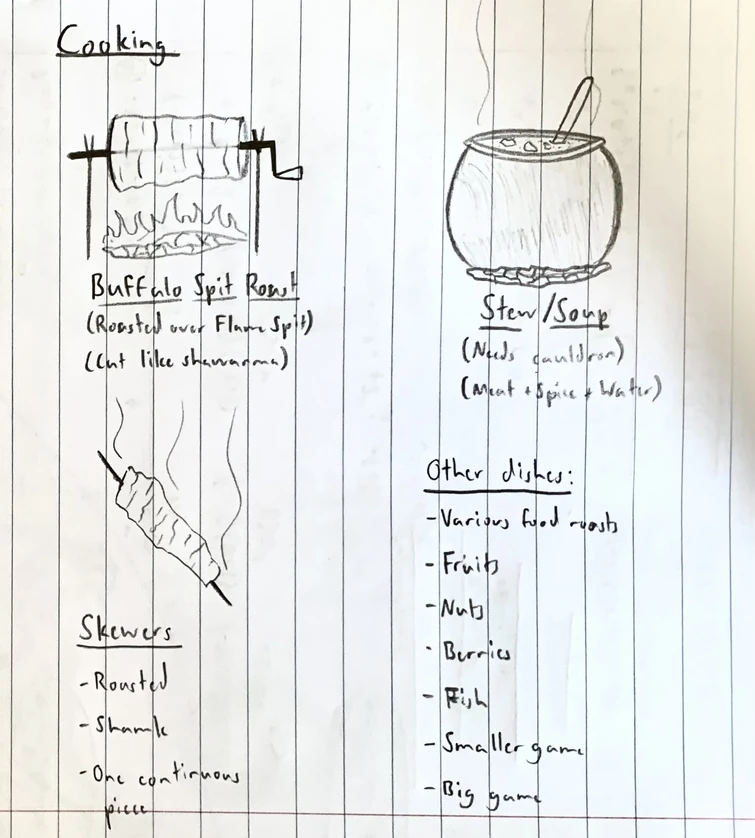 Cooking
Buffalo Spit Roast
(Roasted over Flame Spit)
(Cut like shawarma)
Skewers
- Roasted
- Shank
- One continuous
piece
Stew/Soup
(Needs cauldron)
(Meat + Spice + Water)
Other dishes:
- Various food roasts
- Fruits
- Nuts
- Berries
- Fish
- Smaller game
- Big game